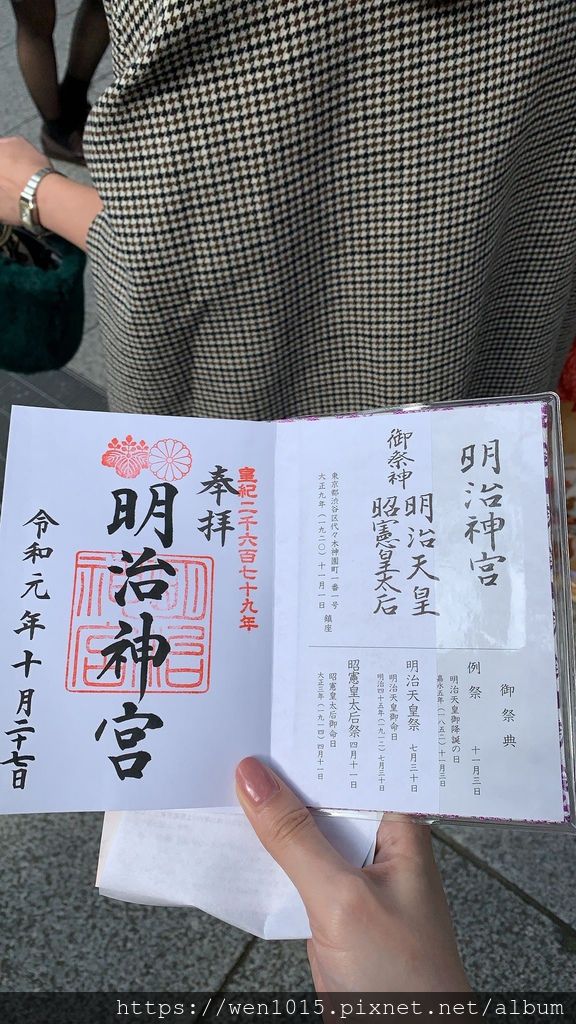 明治神宮
御祭神
明治天皇
昭憲皇太后
東京都渋谷区代々木神園町一番一号
大正九年（一九二〇）十一月一日 鎮座
御祭典
例祭 十一月三日
明治天皇御降誕の日
嘉永五年（一八五二）十一月三日
明治天皇祭 七月三十日
明治天皇御命日
明治四十五年（一九一二）七月三十日
昭憲皇太后祭 四月十一日
昭憲皇太后御命日
大正三年（一九一四）四月十一日
皇紀二千六百七十九年
奉拝
明治神宮
明治
神宮
令和元年十月二十七日
https://wen1015.pixnet.net/album